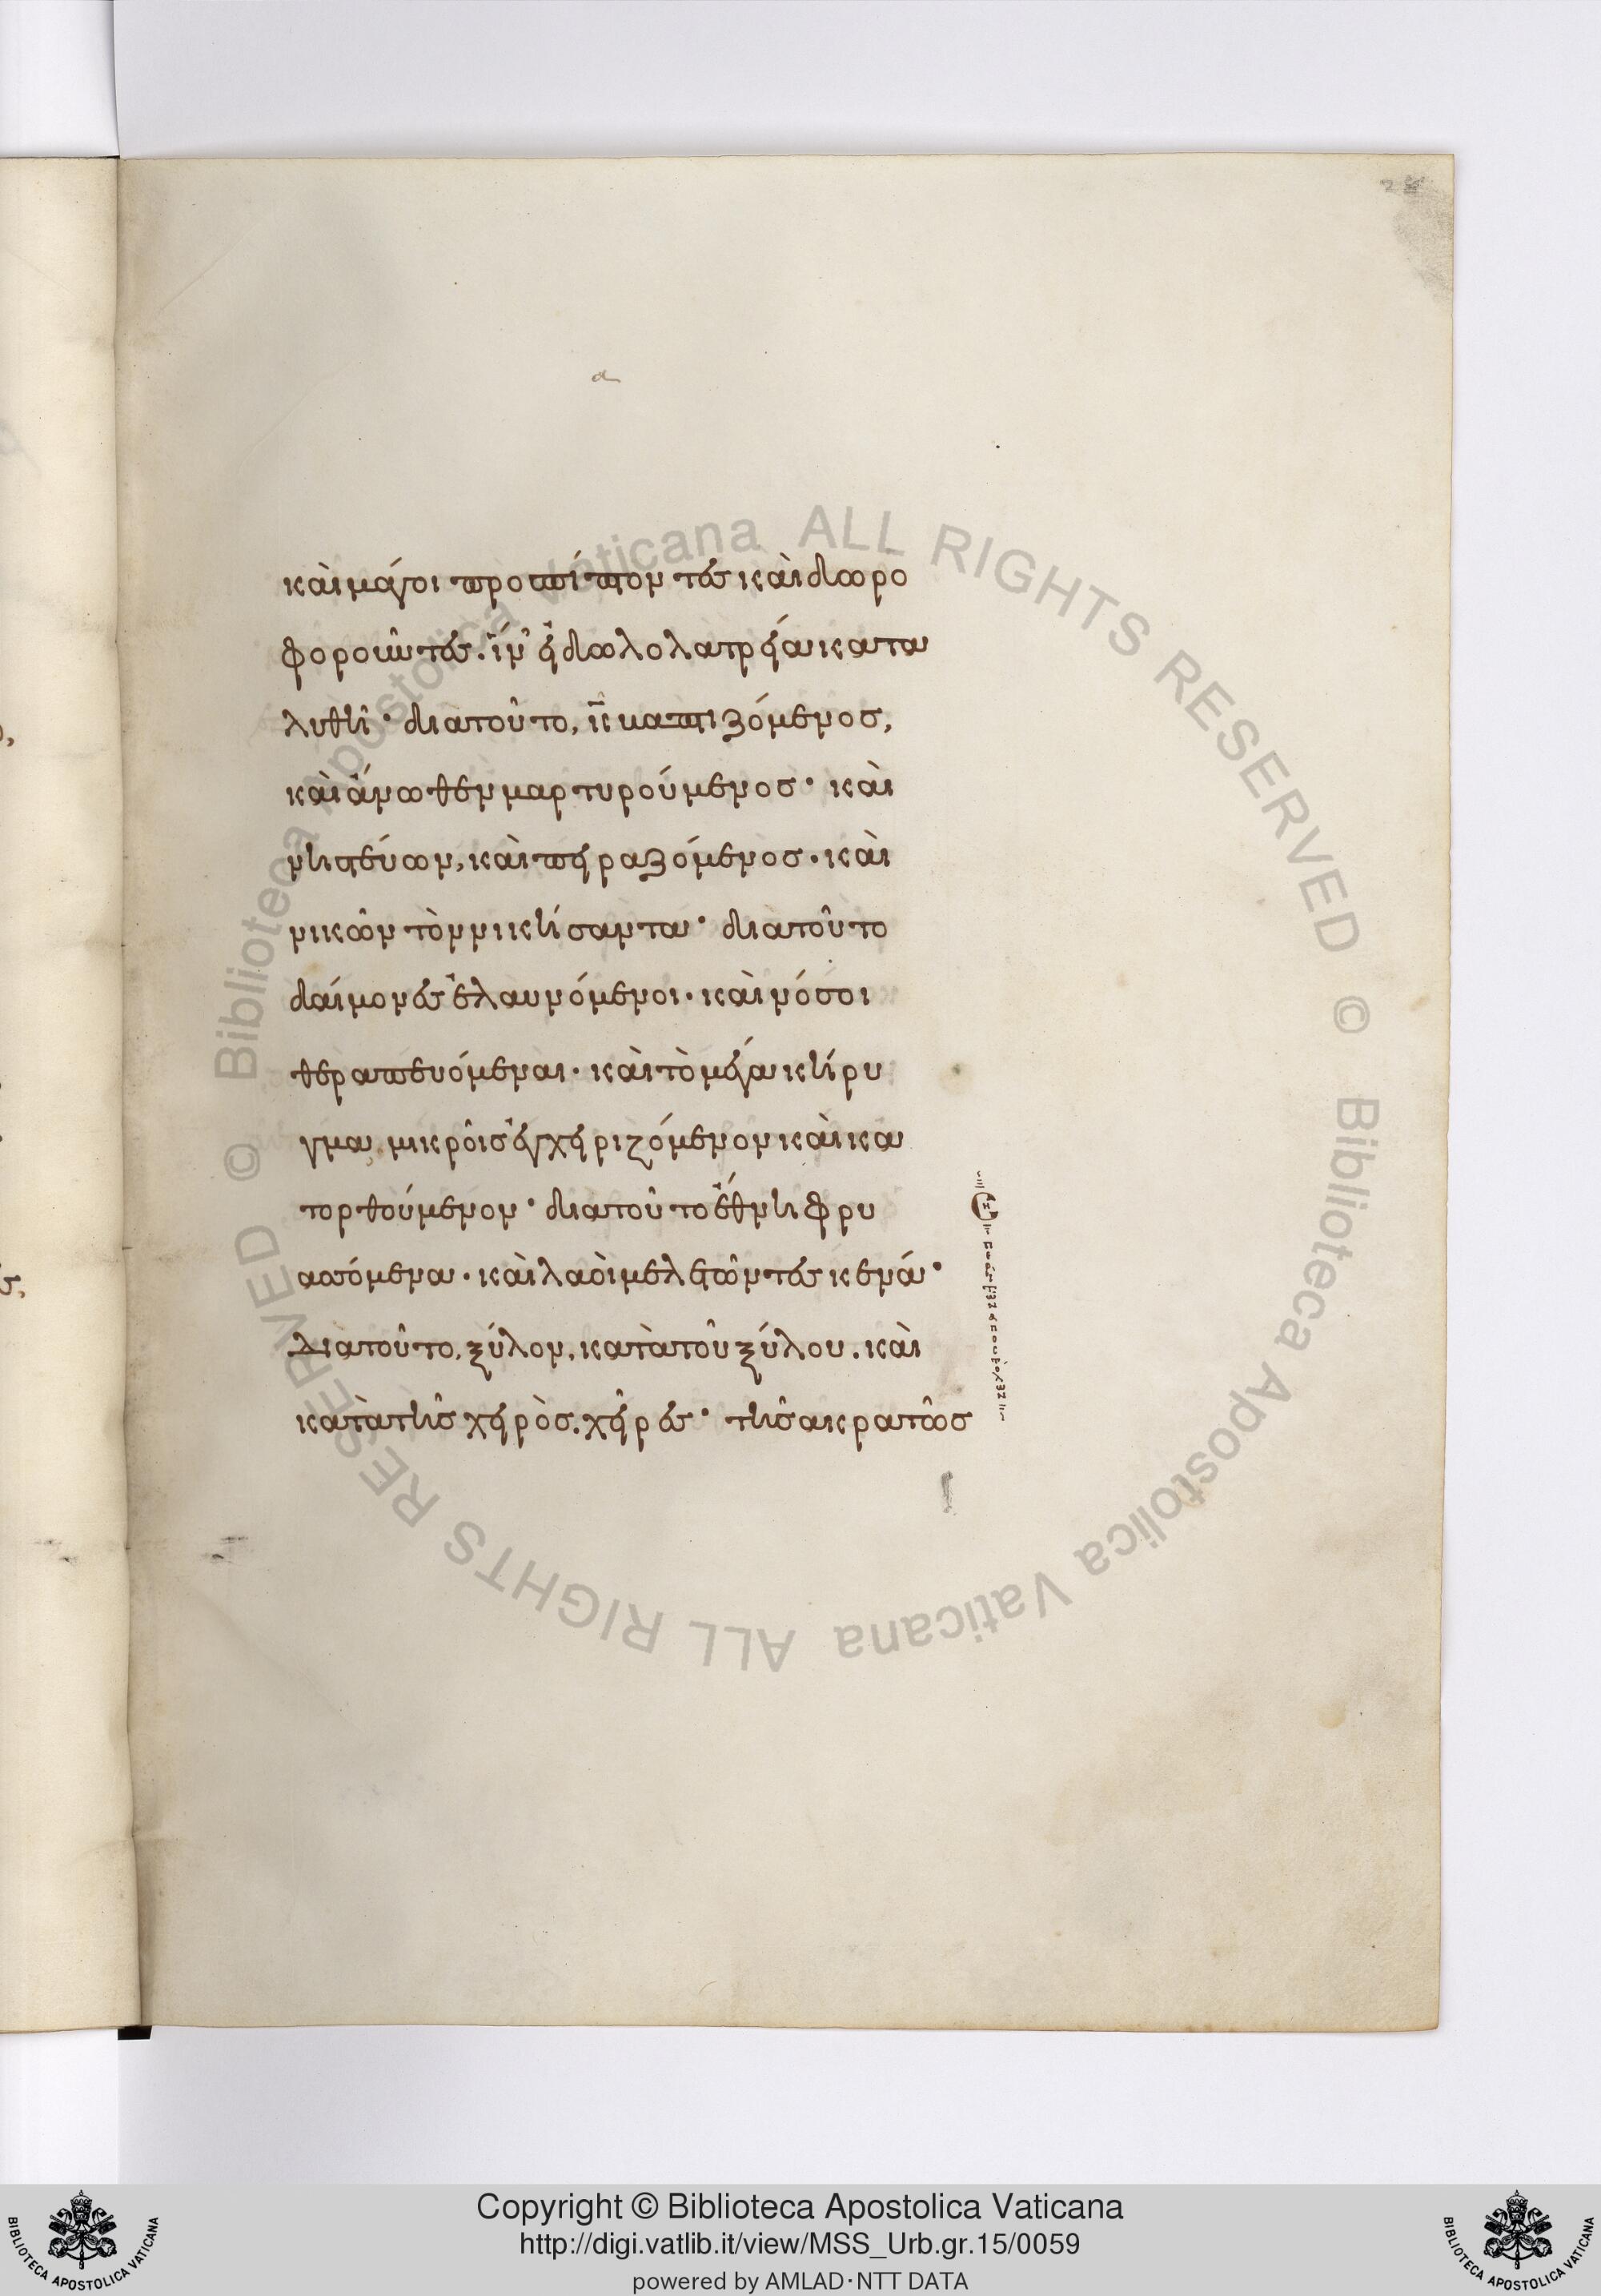 καὶ μάγοι προπίπτοντες καὶ δωρο
φοροῦντες. ἵν' εἰδωλολατρεία κατα
λυθῆ· διατοῦτο, ἰς βαπτιζόμενος,
καὶ ἄνωθεν μαρτυρούμενος· καὶ
νηστεύων, καὶ πειραζόμενος. καὶ
νικῶν τὸν νικήσαντα· διατοῦτο
δαίμονες ἐλαυνόμενοι. καὶ νόσοι
θεραπευόμεναι. καὶ τὸ μέγα κήρυ
γμα μικροῖς ἐγχειριζόμενον καὶ κα
τορθούμενον· διατοῦτο ἔθνη φρυ
αττόμενα. καὶ λαοὶ μελετῶντες κενά·
Διατοῦτο, ξύλον, κατὰ τοῦ ξύλου. καὶ
κατὰ τῆς χειρὸς. χεῖρες· τῆς ἀκρατῶς
Copyright © Biblioteca Apostolica Vaticana
http://digi.vatlib.it/view/MSS_Urb.gr.15/0059
powered by AMLAD·NTT DATA
BIBLIOTECA APOSTOLICA VATICANA
BIBLIOTECA APOSTOLICA VATICANA
© Biblioteca Apostolica Vaticana ALL RIGHTS RESERVED © Biblioteca Apostolica Vaticana ALL RIGHTS RESERVED